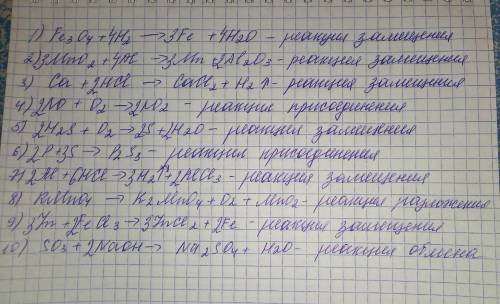 1) Fe3O4+4H2 → 3Fe + 4H2O - реакция замещения
2) 3MnO2+4Al → 3Mn+2Al2O3 - реакция замещения
3) Ca + 2HCl → CaCl2 + H2↑ - реакция замещения
4) 2NO + O2 → 2NO2 - реакция присоединения
5) 2H2S + O2 → 2S+2H2O - реакция замещения
6) 2P+3S → P2S3 - реакция присоединения
7) 2Al + 6HCl → 3H2↑+2AlCl3 - реакция замещения
8) KMnO4 → K2MnO4 + O2 + MnO2 - реакция разложения
9) 3Zn + 2FeCl3 → 3ZnCl2 + 2Fe - реакция замещения
10) SO3 + 2NaOH → Na2SO4 + H2O - реакция обмена